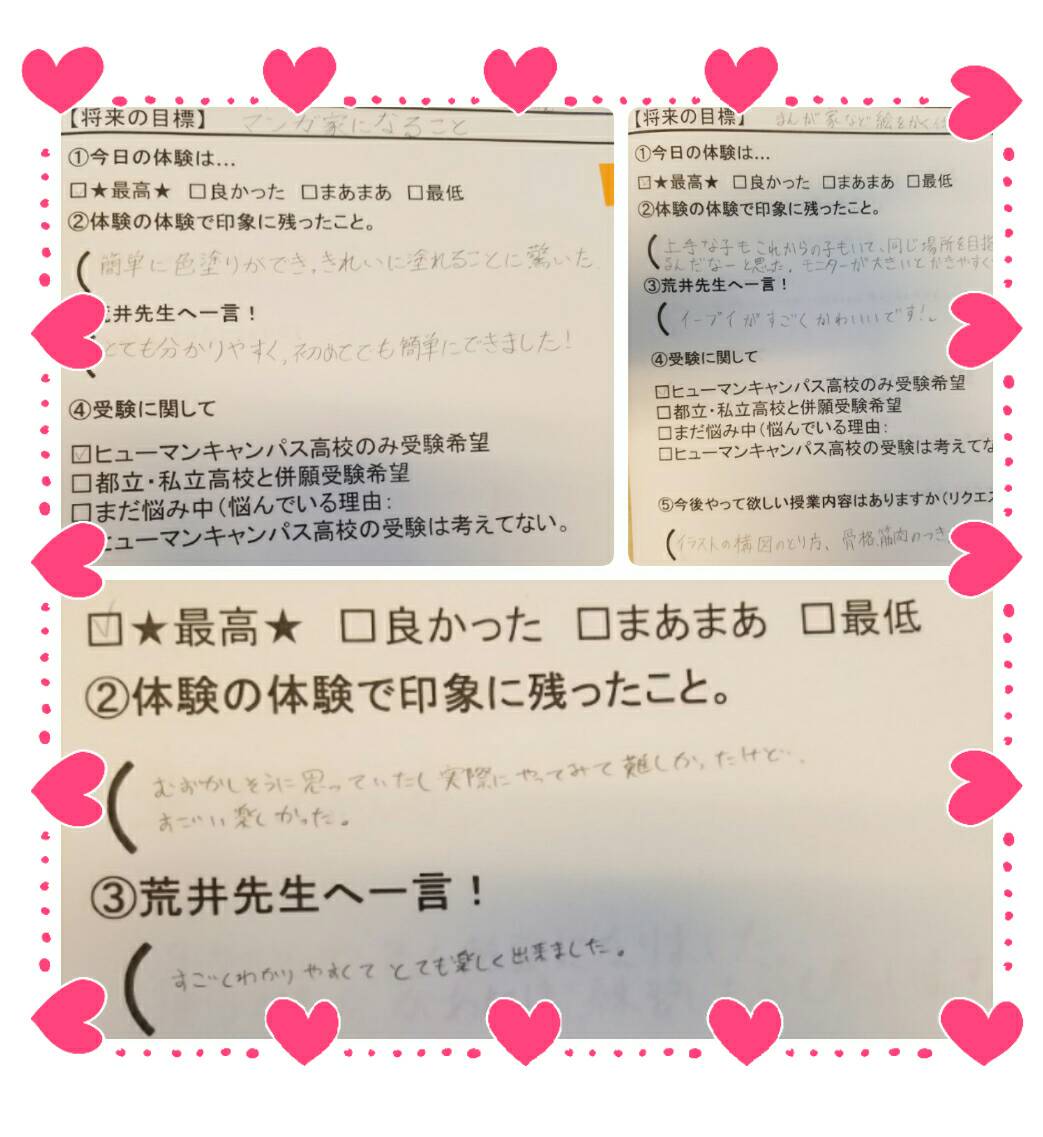 【将来の目標】 マンガ家になること
①今日の体験は…
☑★最高★ □良かった □まあまあ □最低
②体験の体験で印象に残ったこと。
簡単に色塗りができ、きれいに塗れることに驚いた
荒井先生へ一言！
とても分かりやすく、初めてでも簡単にできました！
④受験に関して
☑ヒューマンキャンパス高校のみ受験希望
□都立・私立高校と併願受験希望
□まだ悩み中（悩んでいる理由：
ヒューマンキャンパス高校の受験は考えてない。
【将来の目標】 まんが家など絵をかく仕
①今日の体験は…
☑★最高★ □良かった □まあまあ □最低
②体験の体験で印象に残ったこと。
（上手な子もこれからの子もいて、同じ場所を目指
るんだなーと思った。モニターが大きいとかきやすく
③荒井先生へ一言！
（イーブイがすごくかわいいです！
④受験に関して
☑ヒューマンキャンパス高校のみ受験希望
□都立・私立高校と併願受験希望
□まだ悩み中（悩んでいる理由：
□ヒューマンキャンパス高校の受験は考えてな
⑤今後やって欲しい授業内容はありますか（リクエス
（イラストの構図のとり方、骨格、筋肉のつき
☑★最高★ □良かった □まあまあ □最低
②体験の体験で印象に残ったこと。
（むずかしそうに思っていたし実際にやってみて難しかったけど…
すごい楽しかった。
③荒井先生へ一言！
（すごくわかりやすくてとても楽しく出来ました。